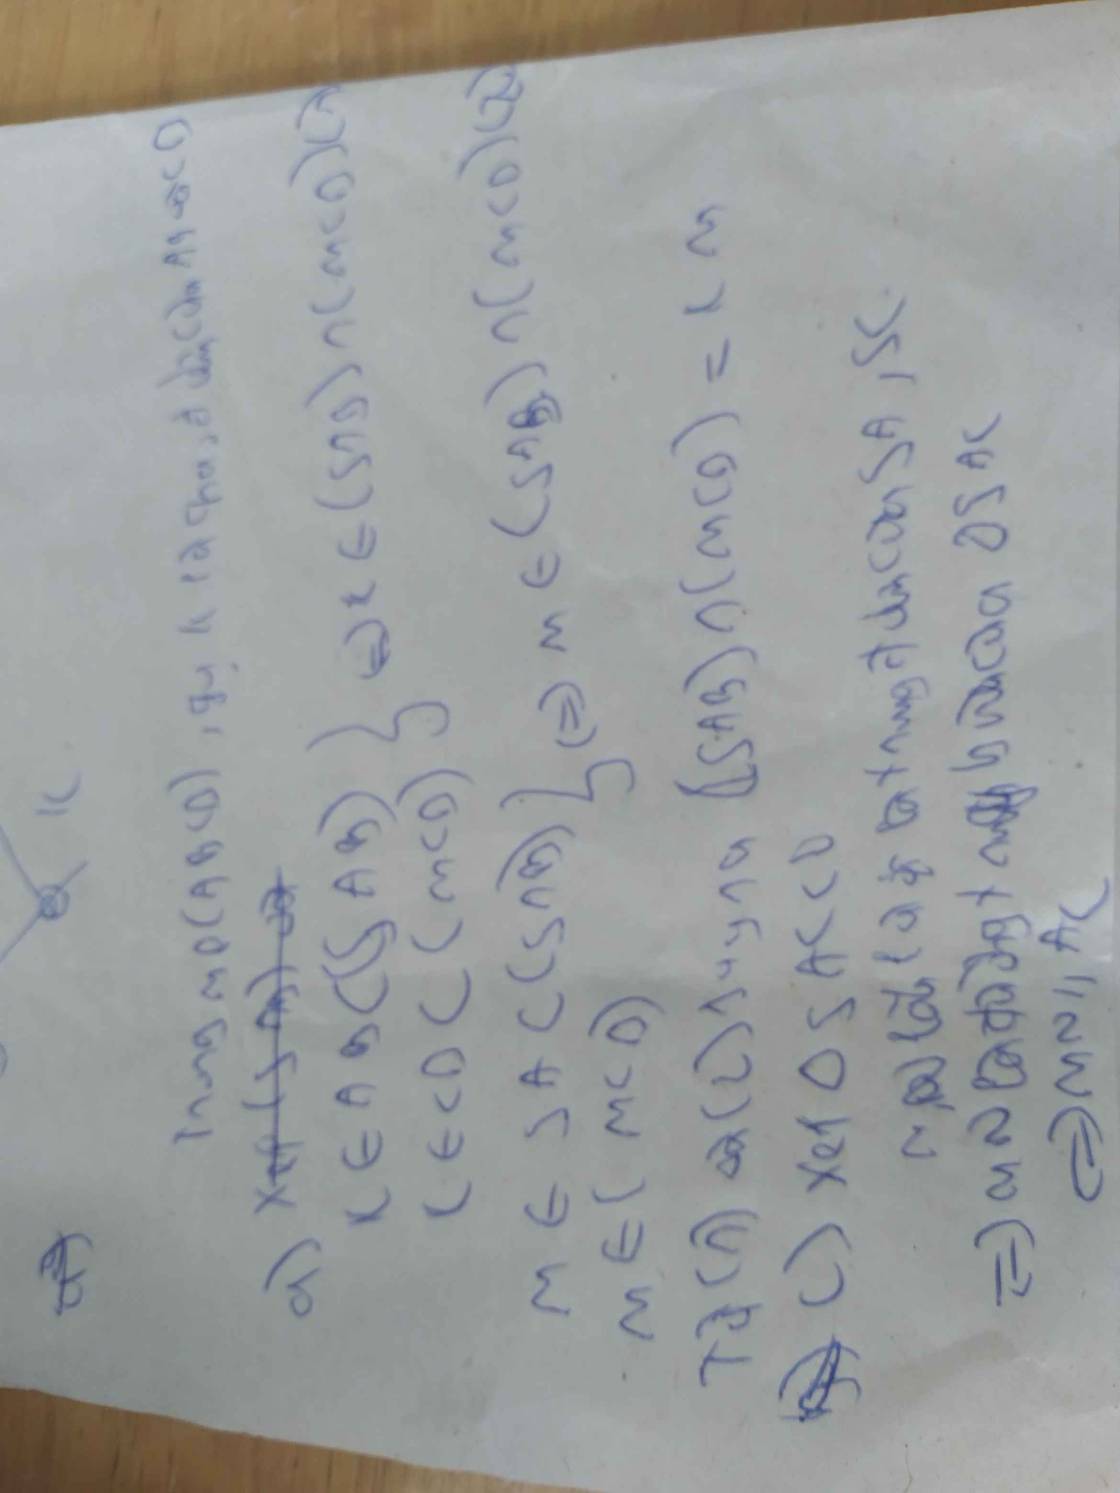 K
Trong mp(ABCD), gọi K là giao điểm của AB và CD
a)
K ∈ AB ⊂ (SAB)
K ∈ CD ⊂ (MCD)
} => K ∈ (SAB) ∩ (MCD) (1)
M ∈ SA ⊂ (SAB)
M ∈ (MCD)
} => M ∈ (SAB) ∩ (MCD) (2)
Từ (1) và (2) suy ra (SAB) ∩ (MCD) = KM
c) Xét Δ SAC có
M, N lần lượt là trung điểm của SA, SC
=> MN là đường trung bình của Δ SAC
=> MN // AC